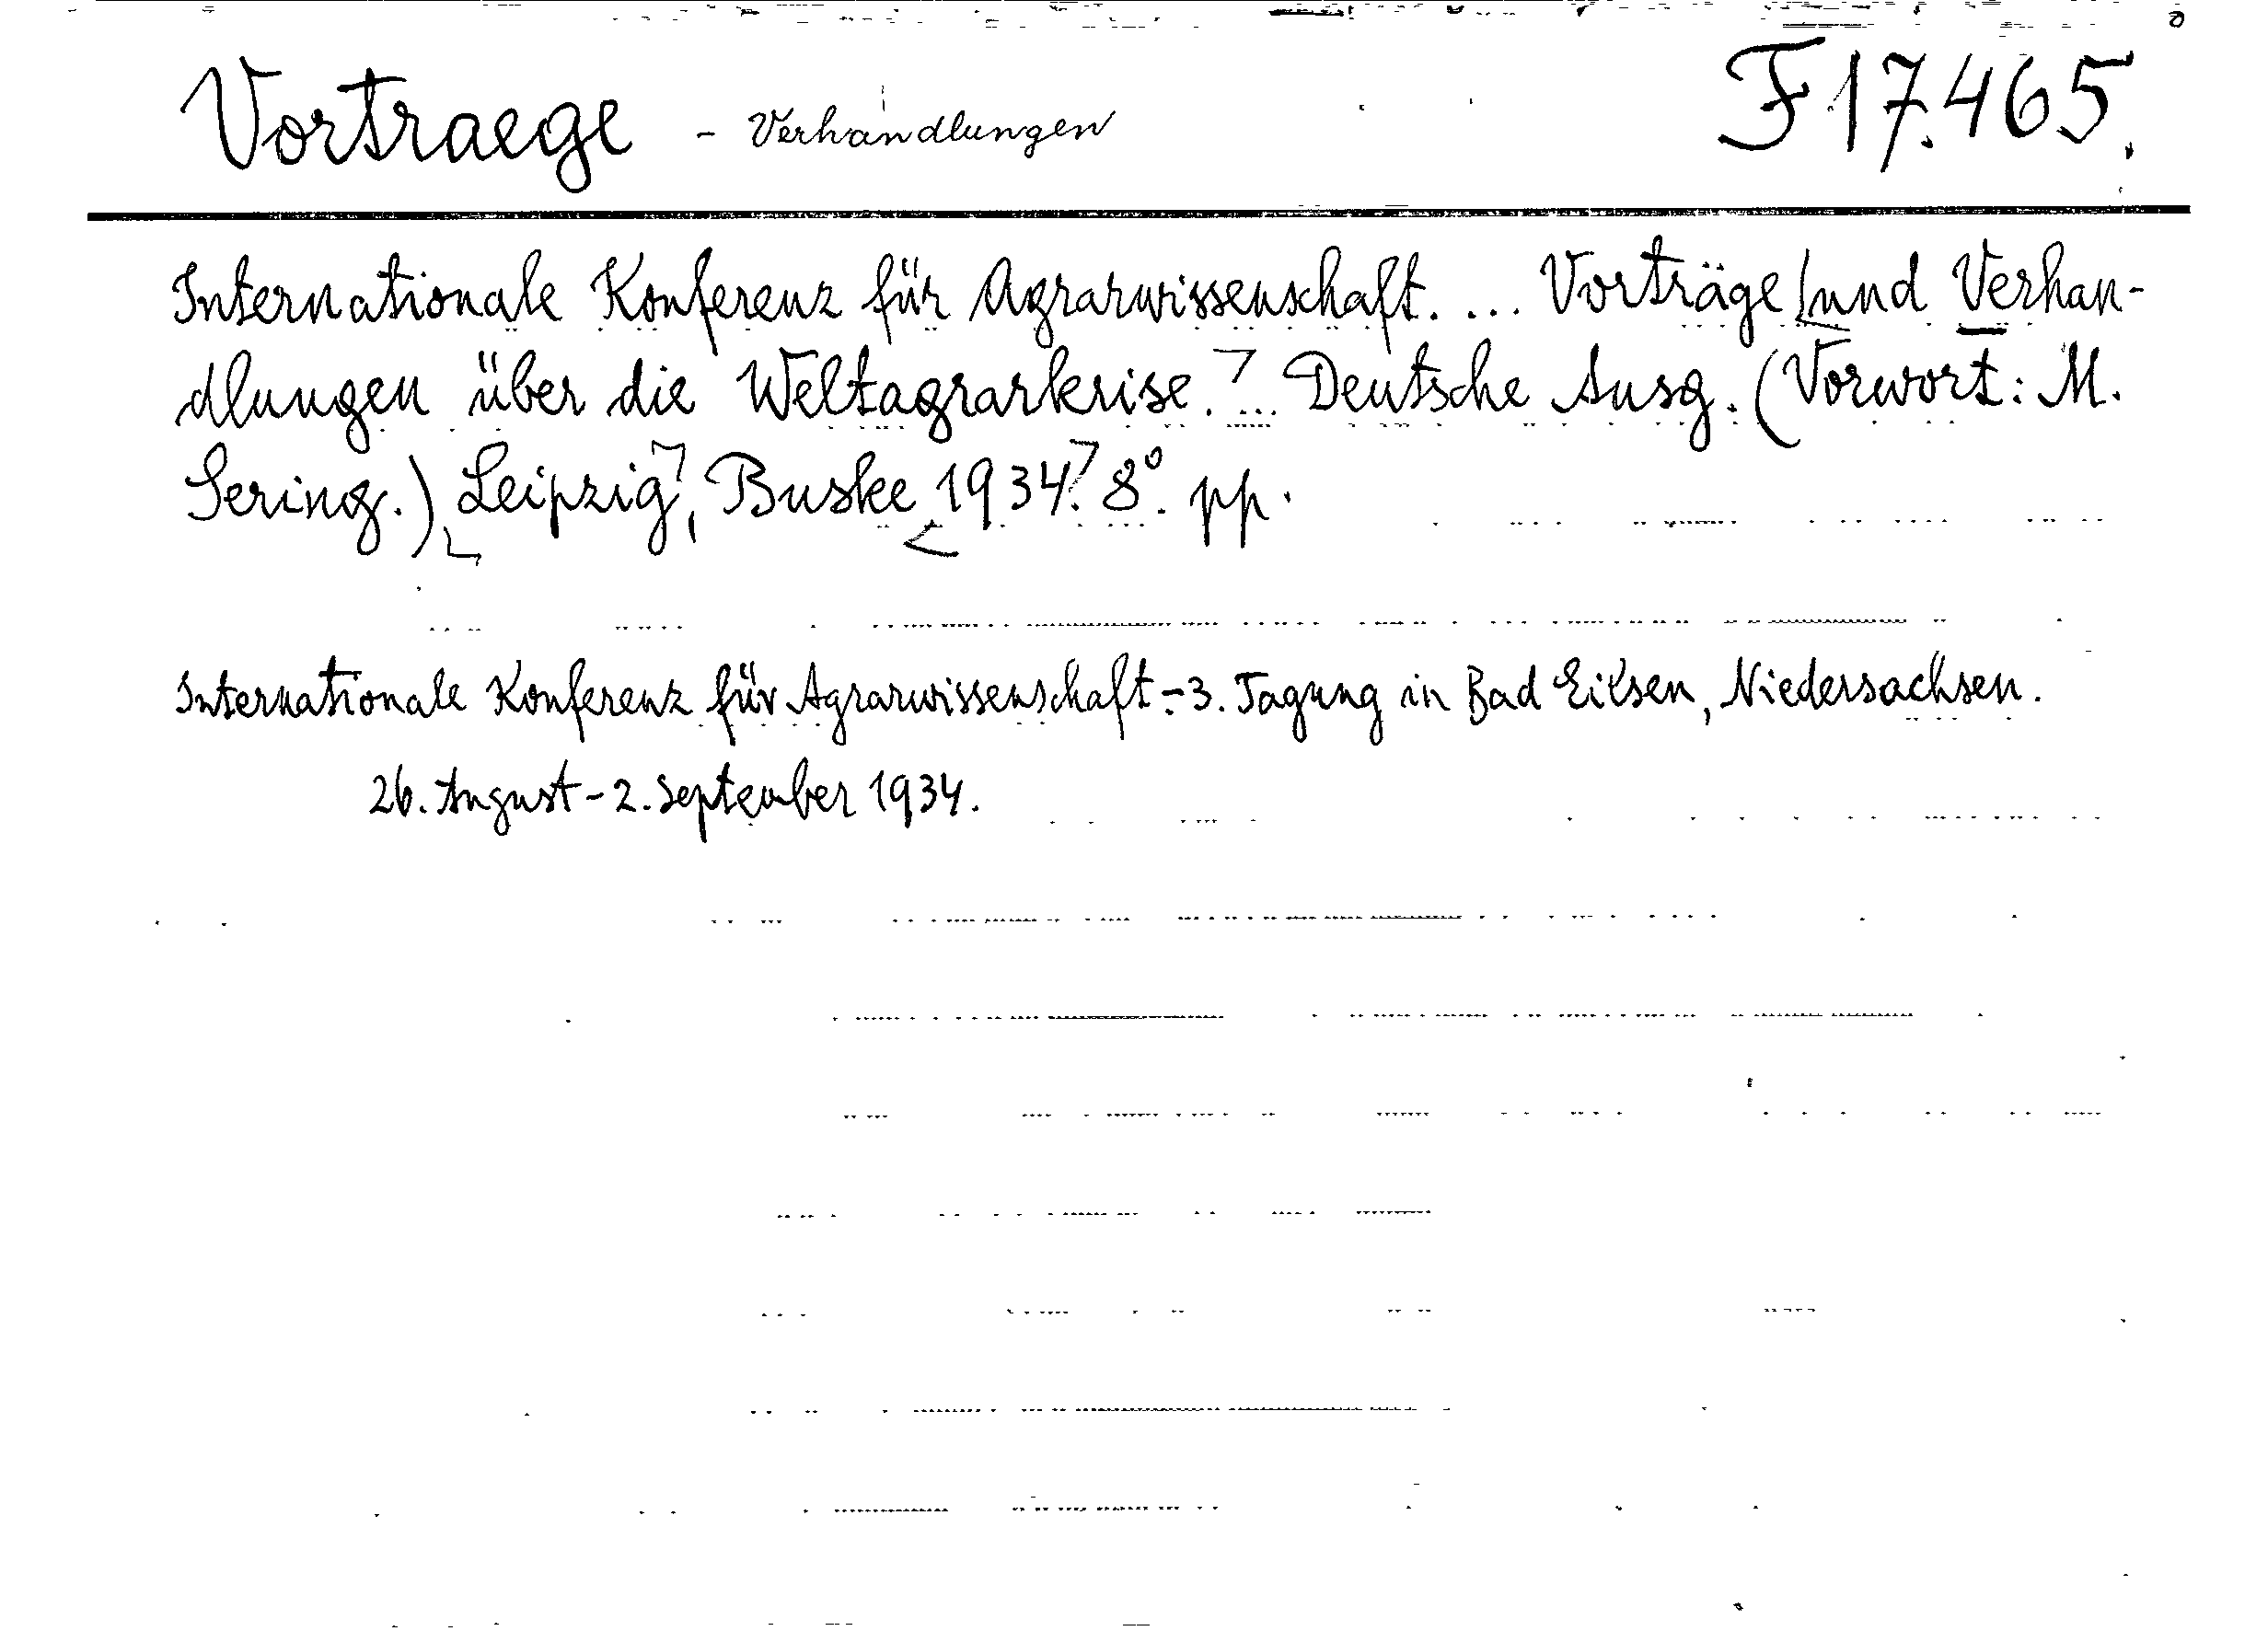 Vortraege - Verhandlungen F 17.465.
Internationale Konferenz für Agrarwissenschaft. ... Vorträge und Verhan-
dlungen über die Weltagrarkrise. ... Deutsche Ausg. (Vorwort: M.
Sering.) Leipzig, Buske 1934. 8°. pp.
Internationale Konferenz für Agrarwissenschaft.-3. Tagung in Bad Eilsen, Niedersachsen.
26. August - 2. September 1934.